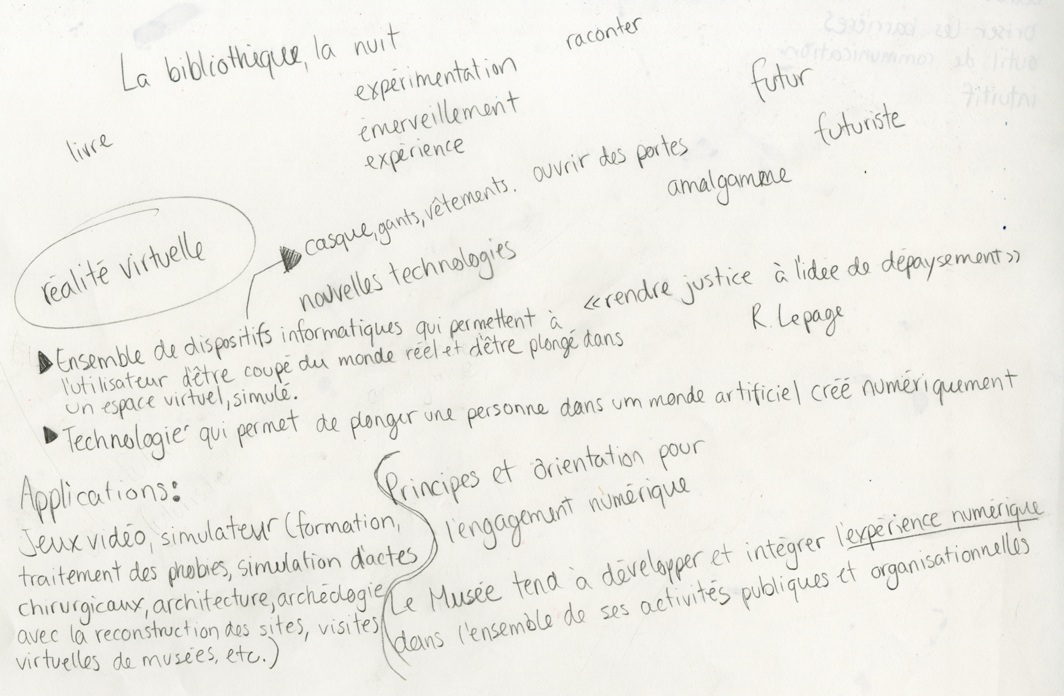 La bibliothèque, la nuit
raconter
expérimentation
émerveillement
expérience
livre
futur
futuriste
ouvrir des portes
amalgamme
réalité virtuelle
casque, gants, vêtements.
nouvelles technologies
«rendre justice à l'idée de dépaysement»
R. Lepage
Ensemble de dispositifs informatiques qui permettent à
l'utilisateur d'être coupé du monde réel et d'être plongé dans
un espace virtuel, simulé.
Technologie qui permet de plonger une personne dans um monde artificiel créé numériquement
Applications:
Jeux vidéo, simulateur (formation,
traitement des phobies, simulation d'actes
chirurgicaux, architecture, archéologie
avec la reconstruction des sites, visites
virtuelles de musées, etc.)
Principes et orientation pour
l'engagement numérique
Le Musée tend à développer et intégrer l'expérience numérique
dans l'ensemble de ses activités publiques et organisationnelles
briser les barrières
outil de communication
intuitif